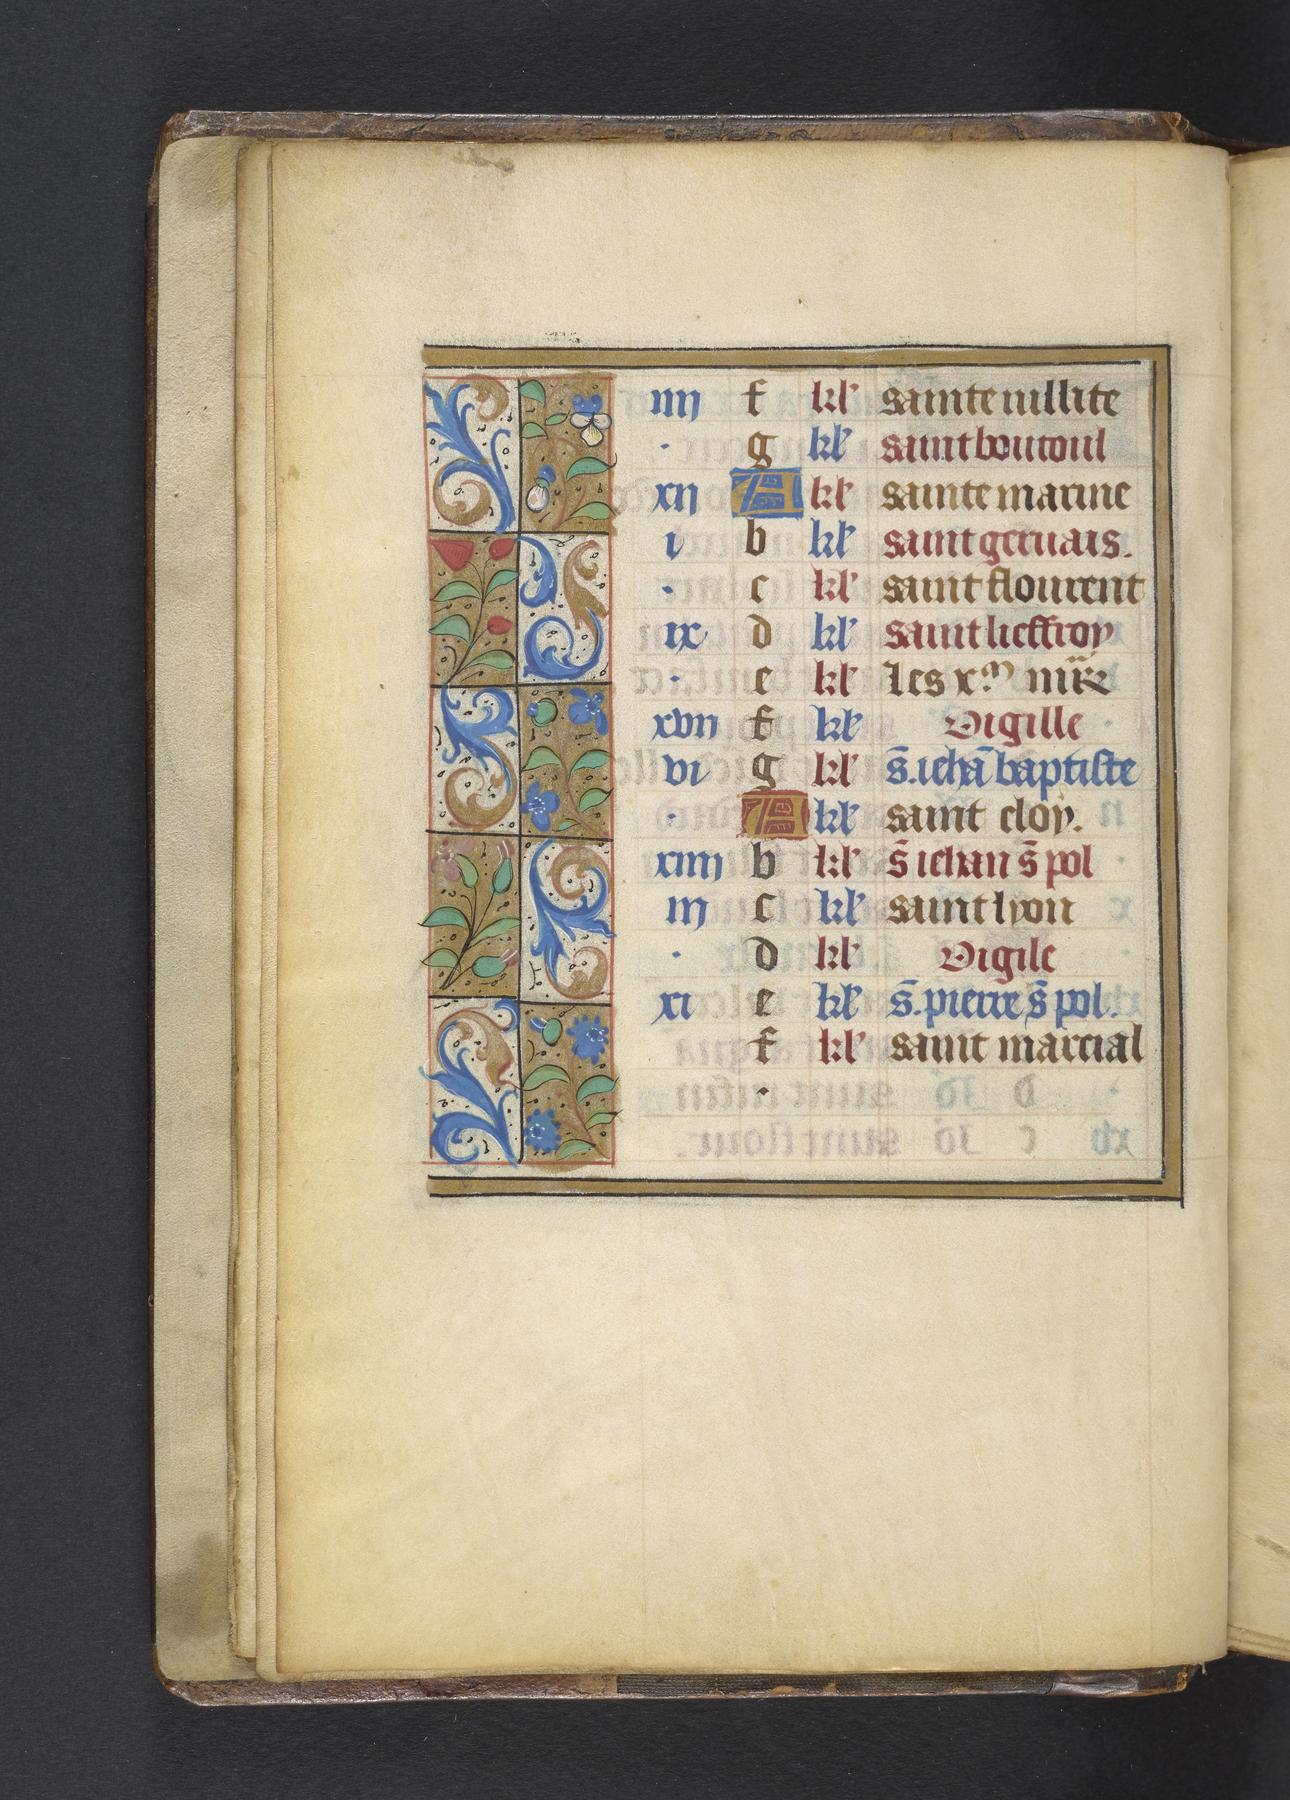 iiii f kl' sainte iullite
· g kl' saint boutoul
xii A kl' sainte marine
i b kl' saint geruais.
· c kl' saint flourent
ix d kl' saint lieffroy
· e kl' les x.m
xvii f kl' Vigille
vi g kl' s̄. iehā baptiste
· A kl' saint eloy.
xiiii b kl' s̄ iehan s̄ pol
iii c kl' saint lyon
· d kl' Vigile
xi e kl' s̄. pierre s̄ pol.
f kl' saint marcial